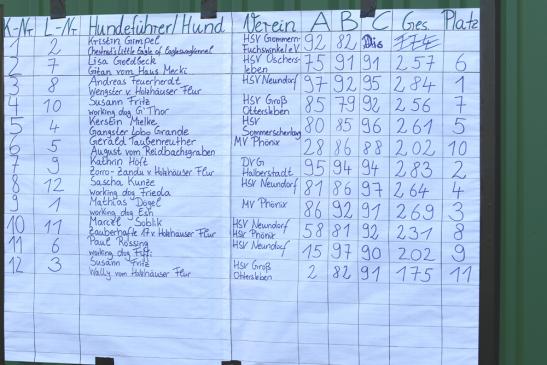 K-Nr L-Nr Hundeführer/Hund Verein A B C Ges. Platz
1 2 Kristin Gimpel HSV Grommern- 92 82 Dis
Chestnut's little Eagle of Eagleswingkennel Fuchswinkel e.V.
2 7 Lisa Goldbeck HSV Oschers- 75 91 91 257 6
Gitan vom Haus Mecki leben
3 8 Andreas Feuerherdt HSV Neundorf 97 92 95 284 1
Wengster v. Holzhäuser Flur
4 10 Susann Fritz HSV Groß 85 79 92 256 7
working dog G'Thor Ottersleben
5 4 Kerstin Mielke HSV 80 85 96 261 5
Gangster lobo Grande
6 5 Gerald Taubenreuther MV Phönix 28 86 88 202 10
August vom Reidbachsgraben
7 9 Kathrin Höft DVG 95 94 94 283 2
Zorro-Zandu v. Holzhäuser Flur Halberstadt
8 12 Sascha Kunze HSV Neundorf 81 86 97 264 4
working dog Frieda
9 1 Mathias Dögel MV Phönix 86 92 91 269 3
working dog Esh
10 11 Marcel Soblik HSV Neundorf 58 81 92 231 8
Zauberhafte 17 v. Holzhäuser Flur HSV Phönix
11 6 Paul Rössing HSV Neundorf 15 97 90 202 9
working dog
12 3 Susann Fritz HSV Groß 2 82 91 175 11
Wally vom Holzhäuser Flur Ottersleben